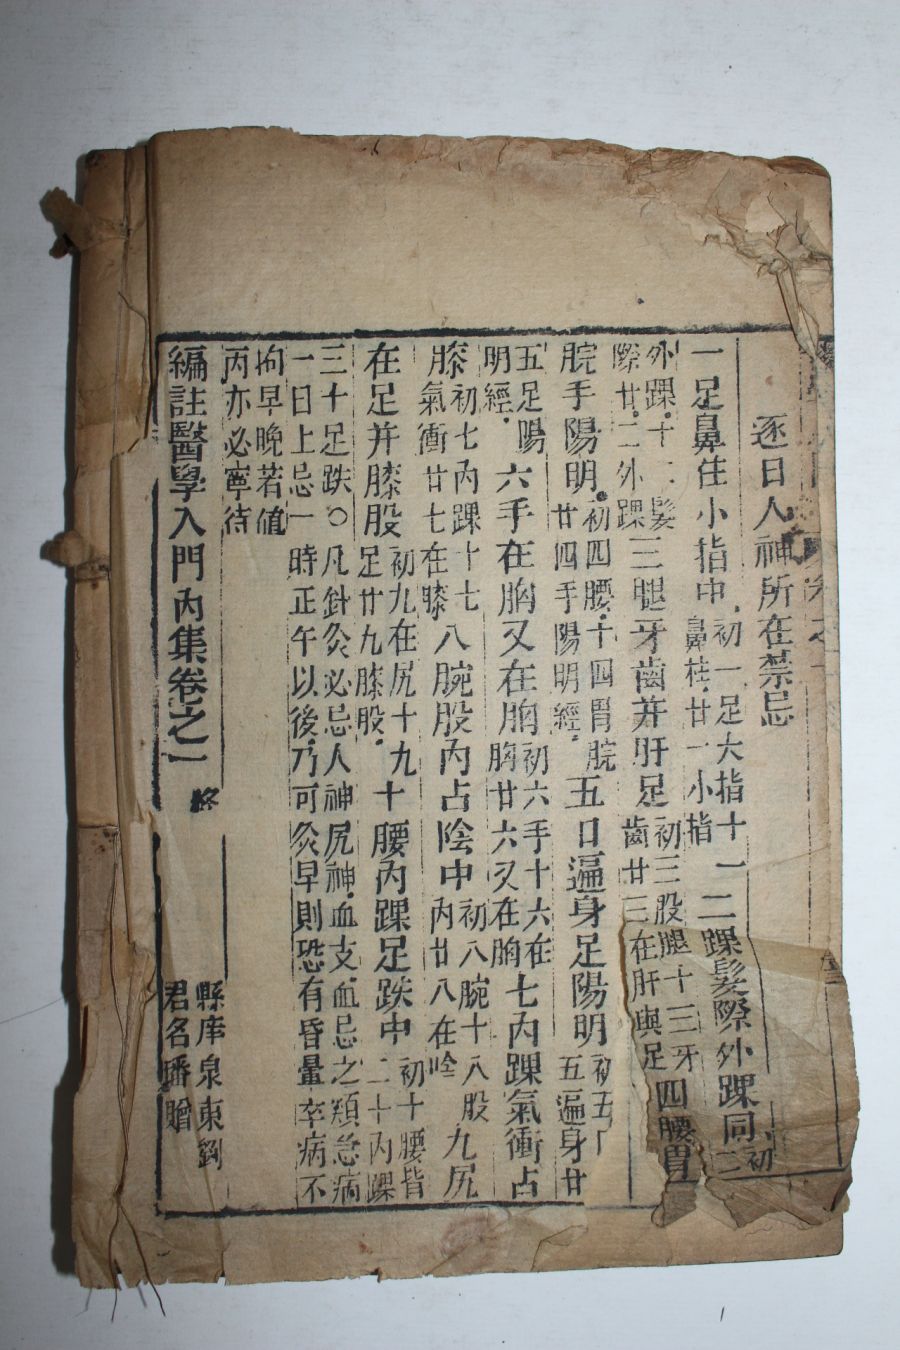 逐日人神所在禁忌
一足鼻住小指中初一足大指十一鼻柱廿一小指二踝髮際外踝同初二
外踝十二髮際廿二外踝三腿牙齒并肝足初三股腿十三牙齒廿三在肝與足四腰胃
脘手陽明初四腰十四胃脘廿四手陽明經五日遍身足陽明初五五遍身廿
五足陽明經六手在胸又在胸初六手十六在胸廿六又在胸七內踝氣衝占
膝初七內踝十七氣衝廿七在膝八腕股內占陰中初八腕十八股內廿八在吟九尻
在足并膝股初九在尻十九足廿九膝股十腰內踝足趺中初十腰皆二十內踝
三十足趺○凡針灸必忌人神尻神血支血忌之類急病
一日上忌一時正午以後乃可灸早則恐有昏暈卒病不
拘早晚若値
丙亦必寧待
編註醫學入門內集卷之二 終
縣庠泉東劉
君名璠贈